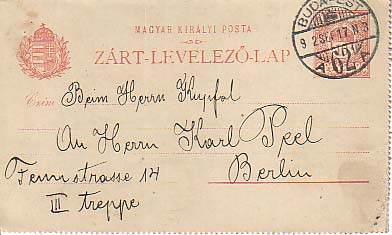 MAGYAR KIRÁLYI POSTA
ZÁRT-LEVELEZŐ-LAP
BUDAPEST
Czim
Beim Herrn Kupfal
An Herrn Karl Peel
Berlin
Fennstrasse 14
III treppe